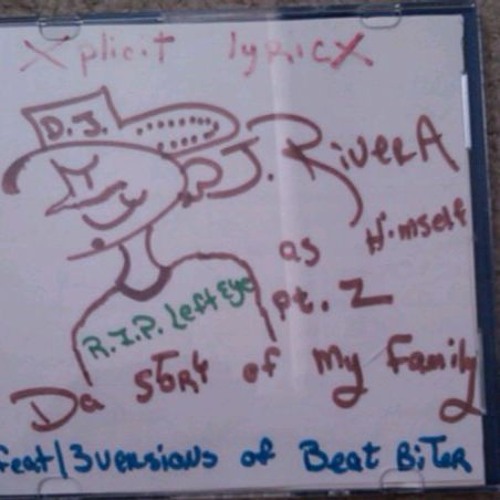 Xplicit lyricX
D.J.
D.J. RiverA
as Himself
pt. 2
R.I.P. Left Eye
Da story of My Family
feat/3versions of Beat BiTer